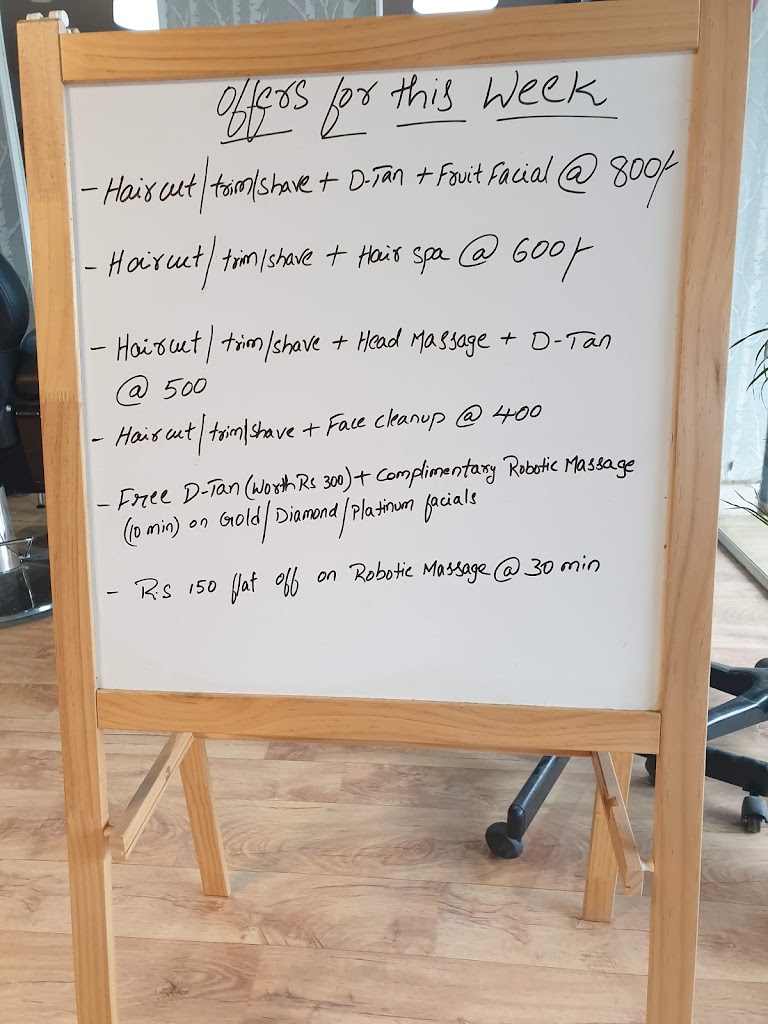 Offers for this Week
- Haircut/trim/shave + D-Tan + Fruit Facial @ 800/-
- Haircut/trim/shave + Hair spa @ 600/-
- Haircut/trim/shave + Head Massage + D-Tan
@ 500
- Haircut/trim/shave + Face cleanup @ 400
- Free D-Tan (Worth Rs 300) + Complimentary Robotic Massage
(10 min) on Gold/Diamond/Platinum facials
- Rs 150 flat off on Robotic Massage @ 30 min